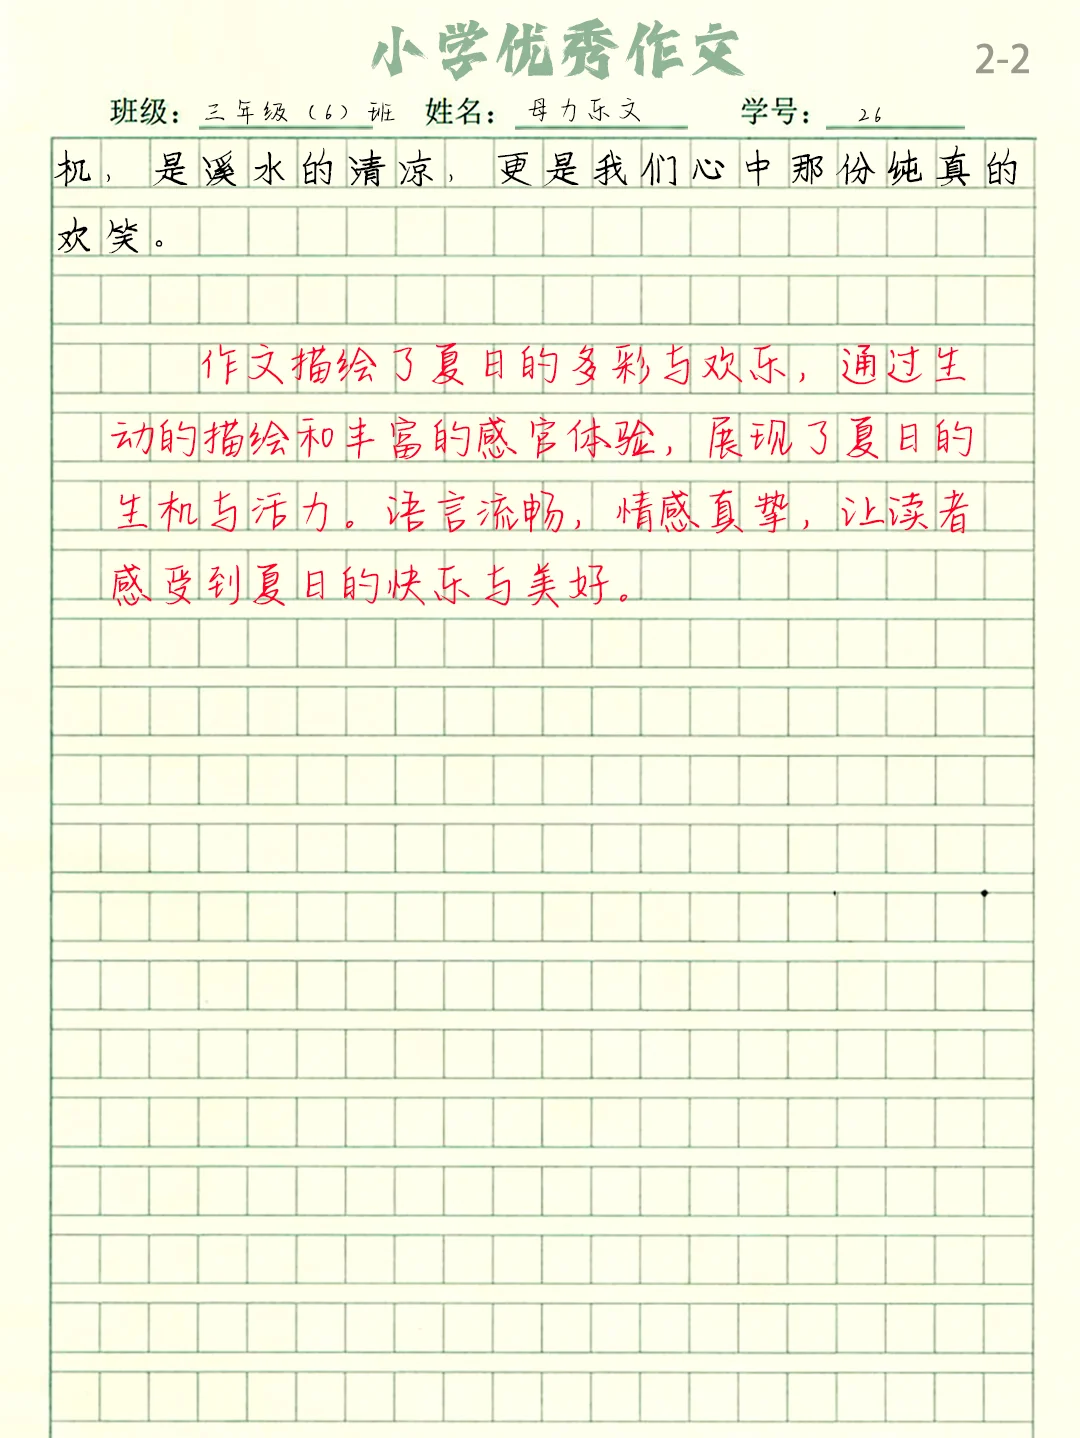 小学优秀作文
2-2
班级：三年级（6）班 姓名：母力乐文 学号：26
机，是溪水的清凉，更是我们心中那份纯真的
欢笑。
作文描绘了夏日的多彩与欢乐，通过生
动的描绘和丰富的感官体验，展现了夏日的
生机与活力。语言流畅，情感真挚，让读者
感受到夏日的快乐与美好。